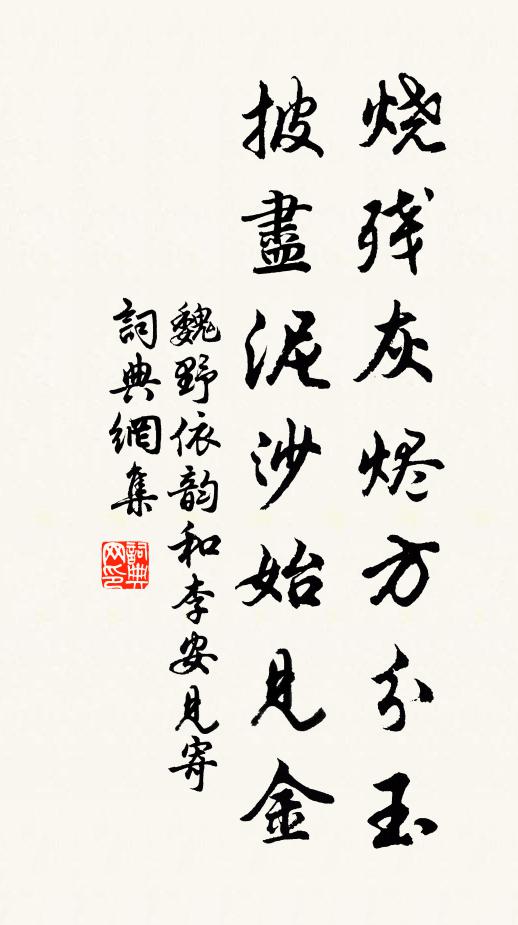 烧残灰烬方分玉
披盡泥沙始見金
魏野依韵和李安見寄
詞典網集
詞典
网印